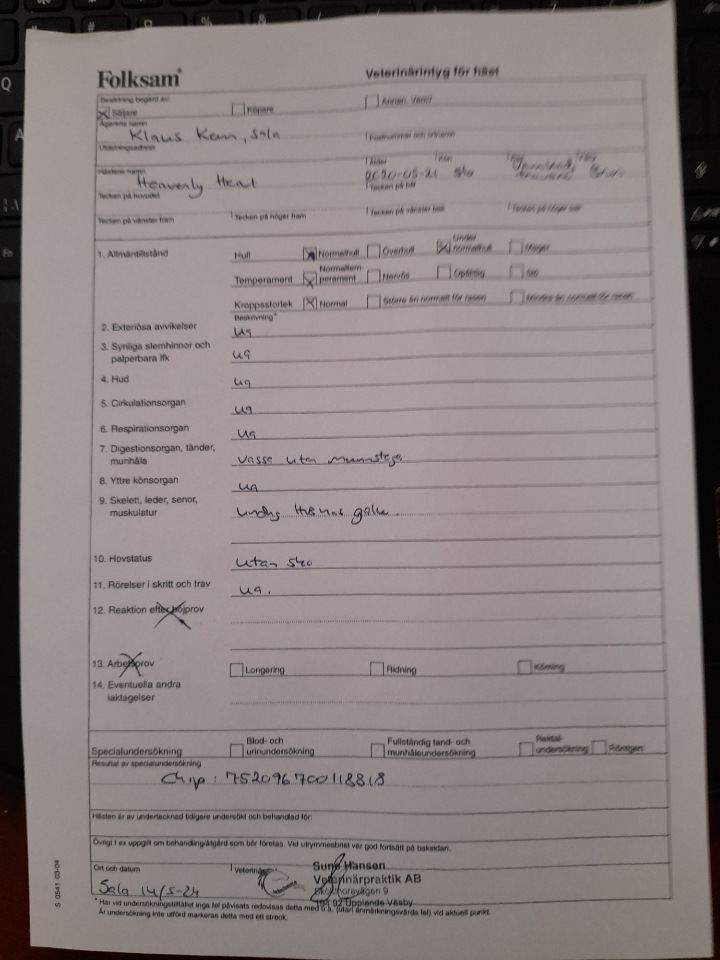 Folksam
Veterinärintyg för häst
Besiktning begärd av:
Säljare Köpare Annan. Vem?
Ägarens namn
Klaus Kenn, Sala
Utdelningsadress Postnummer och adress
Hästens namn
Heavenly Heart 2020-05-21 Sto
Tecken på huvudet Tecken på hals
Tecken på vänster fram Tecken på höger fram Tecken på vänster bak Tecken på höger bak
1. Allmäntillstånd Hull Normalhull Överhull Under normalhull Mager
Temperament Normaltemperament Nervös
Kroppsstorlek Normal Större än normalt för rasen Mindre än normalt för rasen
Beskrivning*
2. Exteriösa avvikelser ua
3. Synliga slemhinnor och
palperbara lfk ua
4. Hud ua
5. Cirkulationsorgan ua
6. Respirationsorgan ua
7. Digestionsorgan, tänder,
munhåla vassa utan munstege
8. Yttre könsorgan ua
9. Skelett, leder, senor,
muskulatur galle
10. Hovstatus utan sko
11. Rörelser i skritt och trav ua.
12. Reaktion efter böjprov
13. Arbetsprov Longering Ridning Körning
14. Eventuella andra
iakttagelser
Specialundersökning Blod- och urinundersökning Fullständig tand- och munhåleundersökning Rektalundersökning Röntgen
Resultat av specialundersökning
Chip: 752096700118818
Hästen är av undertecknad tidigare undersökt och behandlad för:
Övrigt t ex uppgift om behandling/åtgärd som bör företas. Vid utrymmesbrist var god fortsätt på baksidan.
Ort och datum Veterinär
Sala 14/5-24
Sune Hansen
Veterinärpraktik AB
194 92 Upplands Väsby
* Har vid undersökningstillfället inga fel påvisats redovisas detta med u.a. (utan anmärkningsvärda fel) vid aktuell punkt.
Är undersökning inte utförd markeras detta med ett streck.
S 0541 03-04